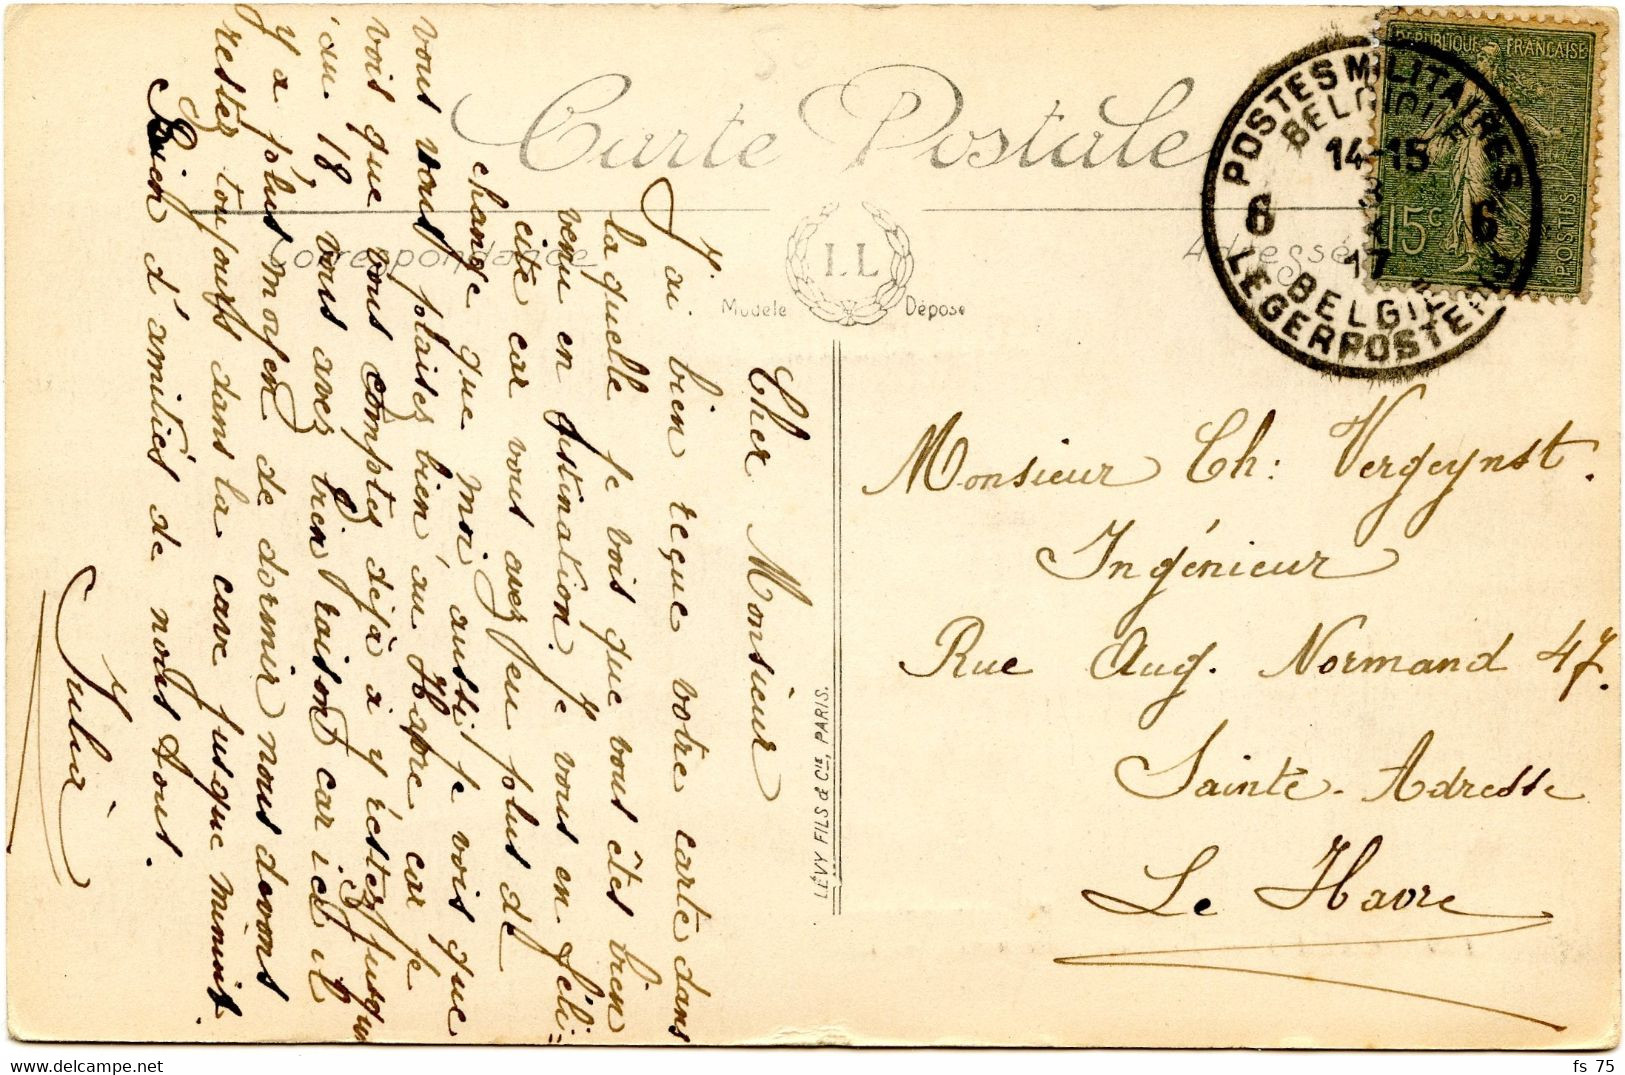 Carte Postale
Correspondance
Adresse
LL
Modèle Déposé
LÉVY FILS & Cie, PARIS.
RÉPUBLIQUE FRANÇAISE
15c
POSTES
POSTES MILITAIRES
BELGIQUE
14-15
6 6
17
BELGIE
LEGERPOSTERIJ
Monsieur Ch: Vergeynst.
Ingénieur
Rue Aug. Normand 47.
Sainte-Adresse
Le Havre
Cher Monsieur
J'ai bien reçue votre carte dans
laquelle je vois que vous êtes bien
venu en destination. Je vous en féli=
cite car vous avez eu plus de
change que moi aussi je vois que
vous vous plaises bien au Havre car je
vois que vous comptes déjà à y restez jusqu'au
au 18 vous avez bien raison car ici il
y a plus moyen de dormir nous devons
restez toujours dans la cave jusque minuit.
Bien d'amitiés de nous tous.
Julia
fs 75